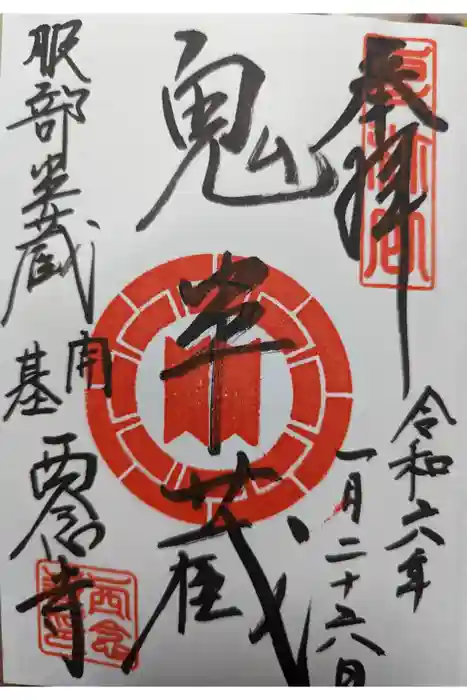 奉拝
令和六年
一月二十六日
鬼半蔵
服部半蔵
開基
西念寺
西念